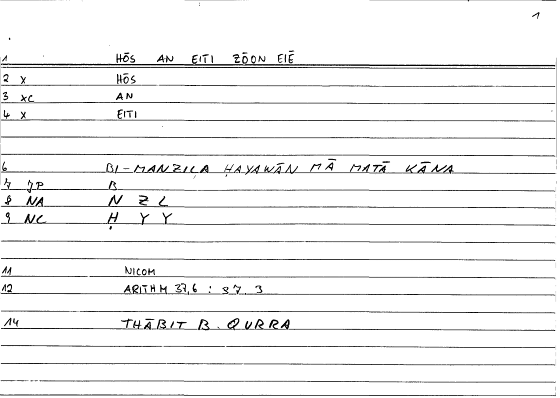 1
1 HŌS AN EITI ZŌON EIĒ
2 X HŌS
3 XC AN
4 X EITI
6 BI-MANZILA ḤAYAWĀN MĀ MATĀ KĀNA
7 JP B
8 NA N Z L
9 NC Ḥ Y Y
11 NICOM
12 ARITHM 37,6 : 37.3
14 THĀBIT B. QURRA